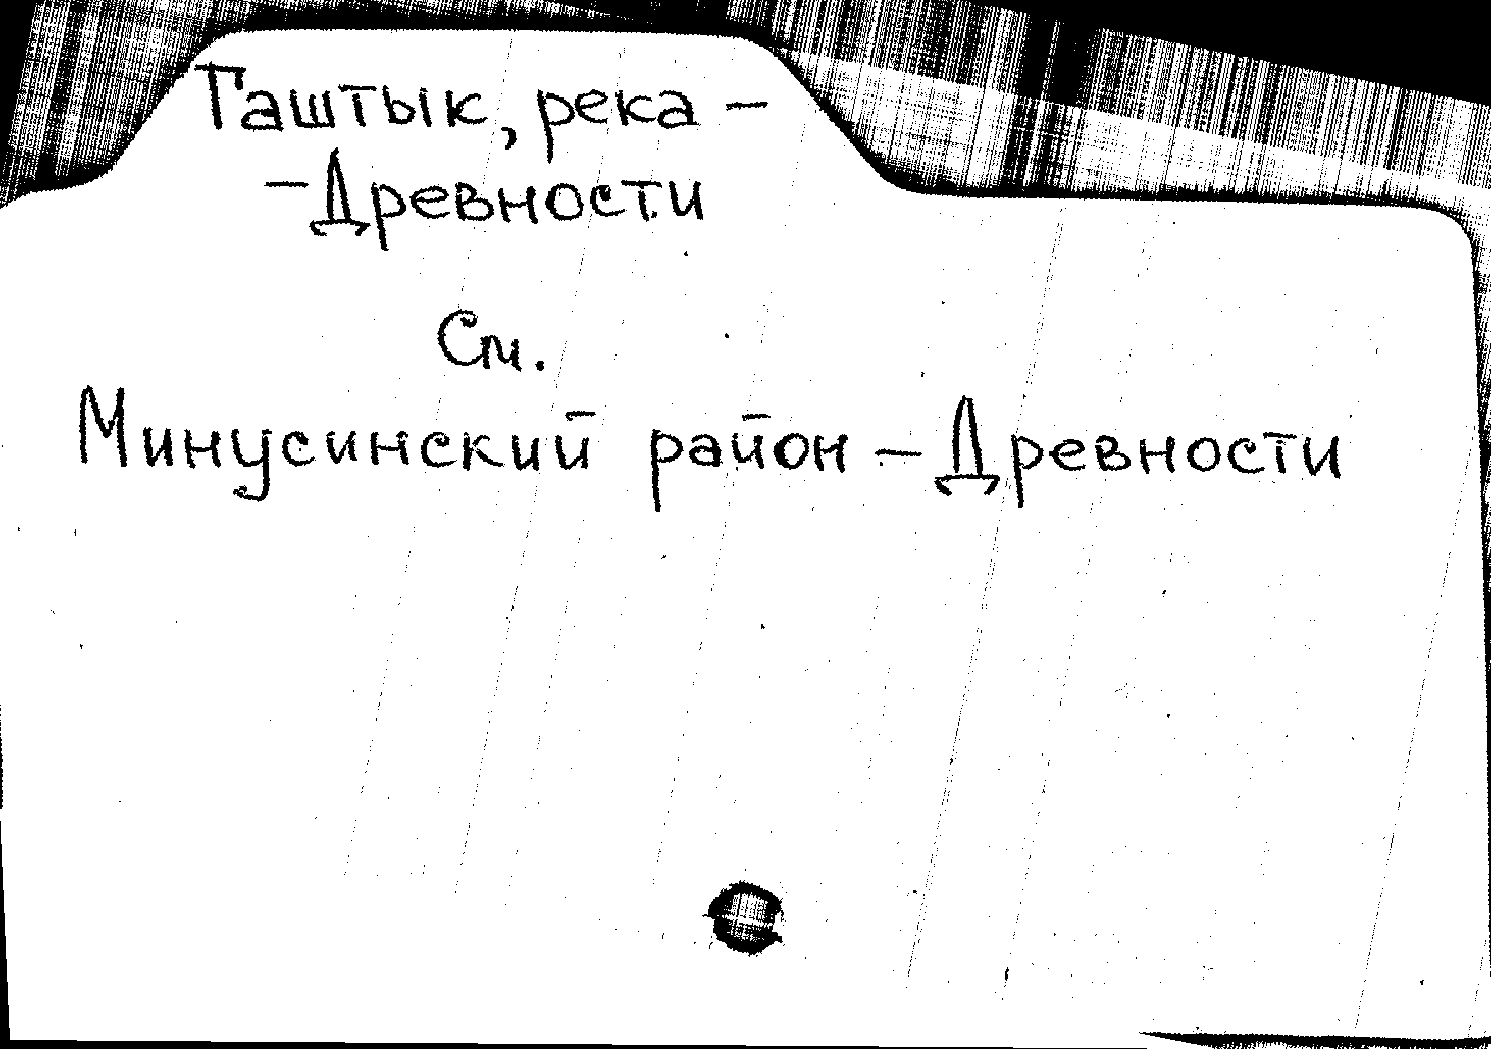 Таштык, река —
— Древности
См.
Минусинский район — Древности